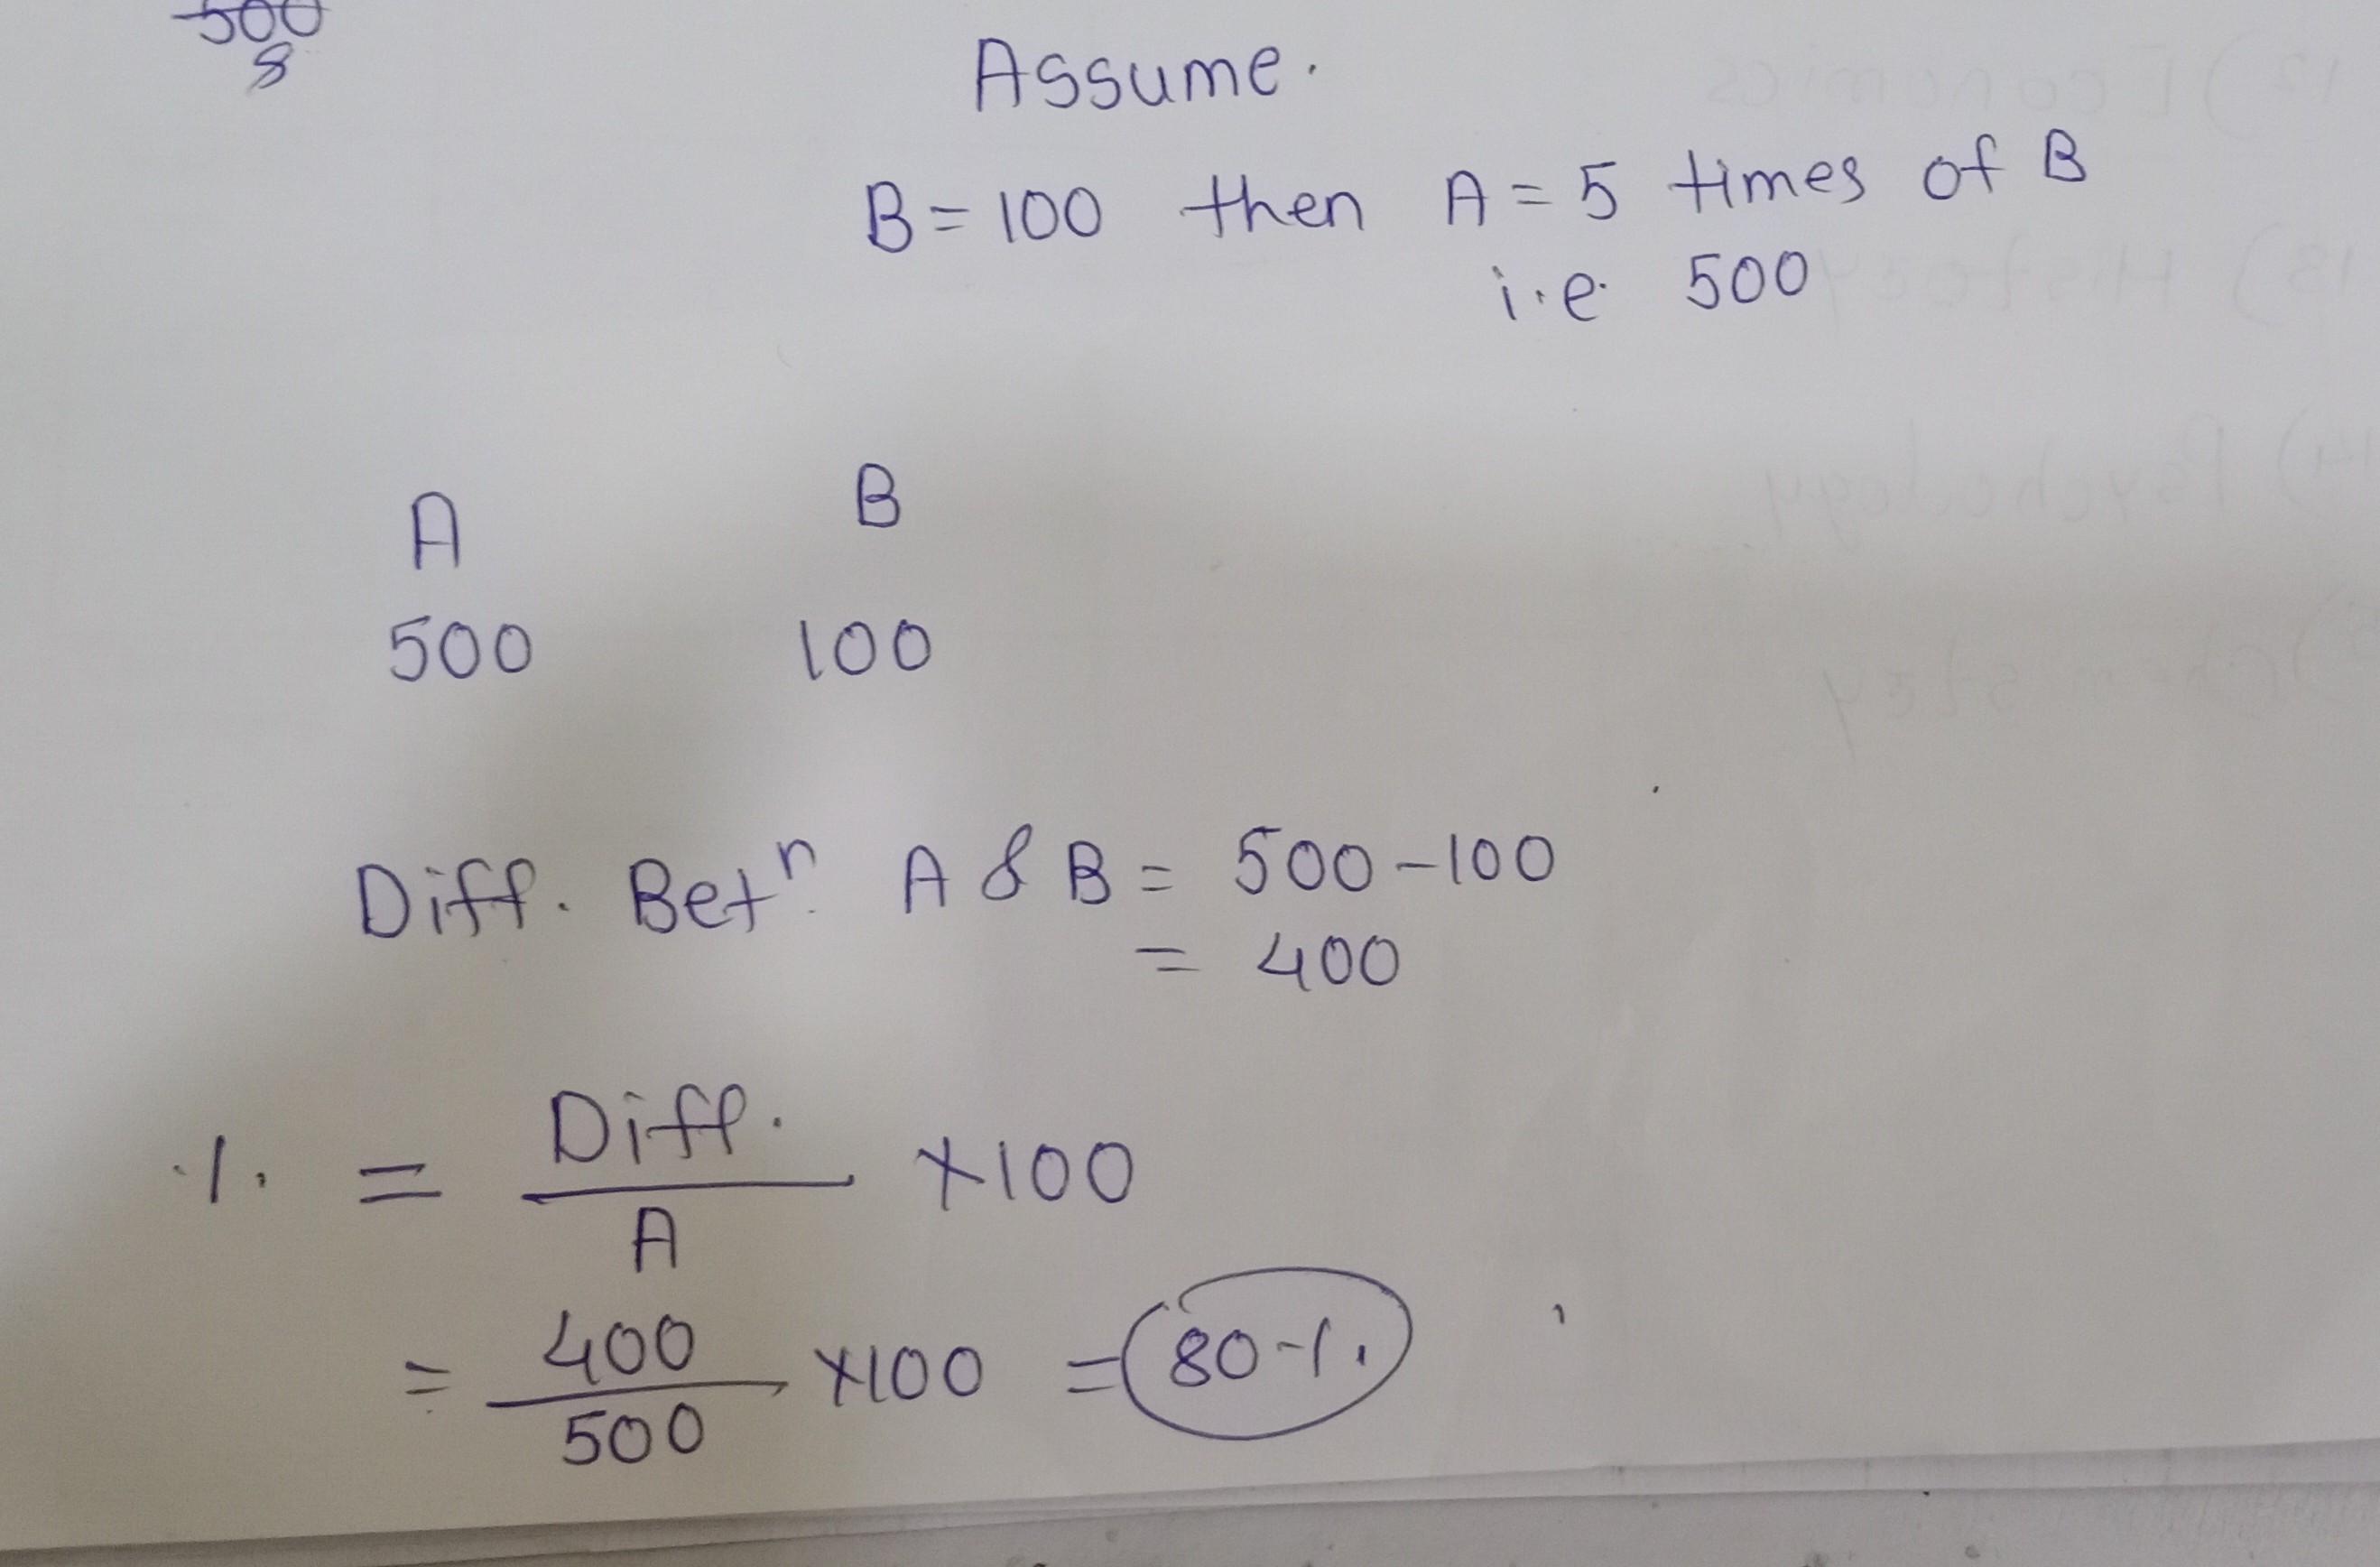 500
8
Assume.
B = 100 then A = 5 times of B
i.e. 500
A B
500 100
Diff. Betn. A & B = 500 - 100
= 400
% = Diff. / A × 100
= 400 / 500 × 100 = 80%